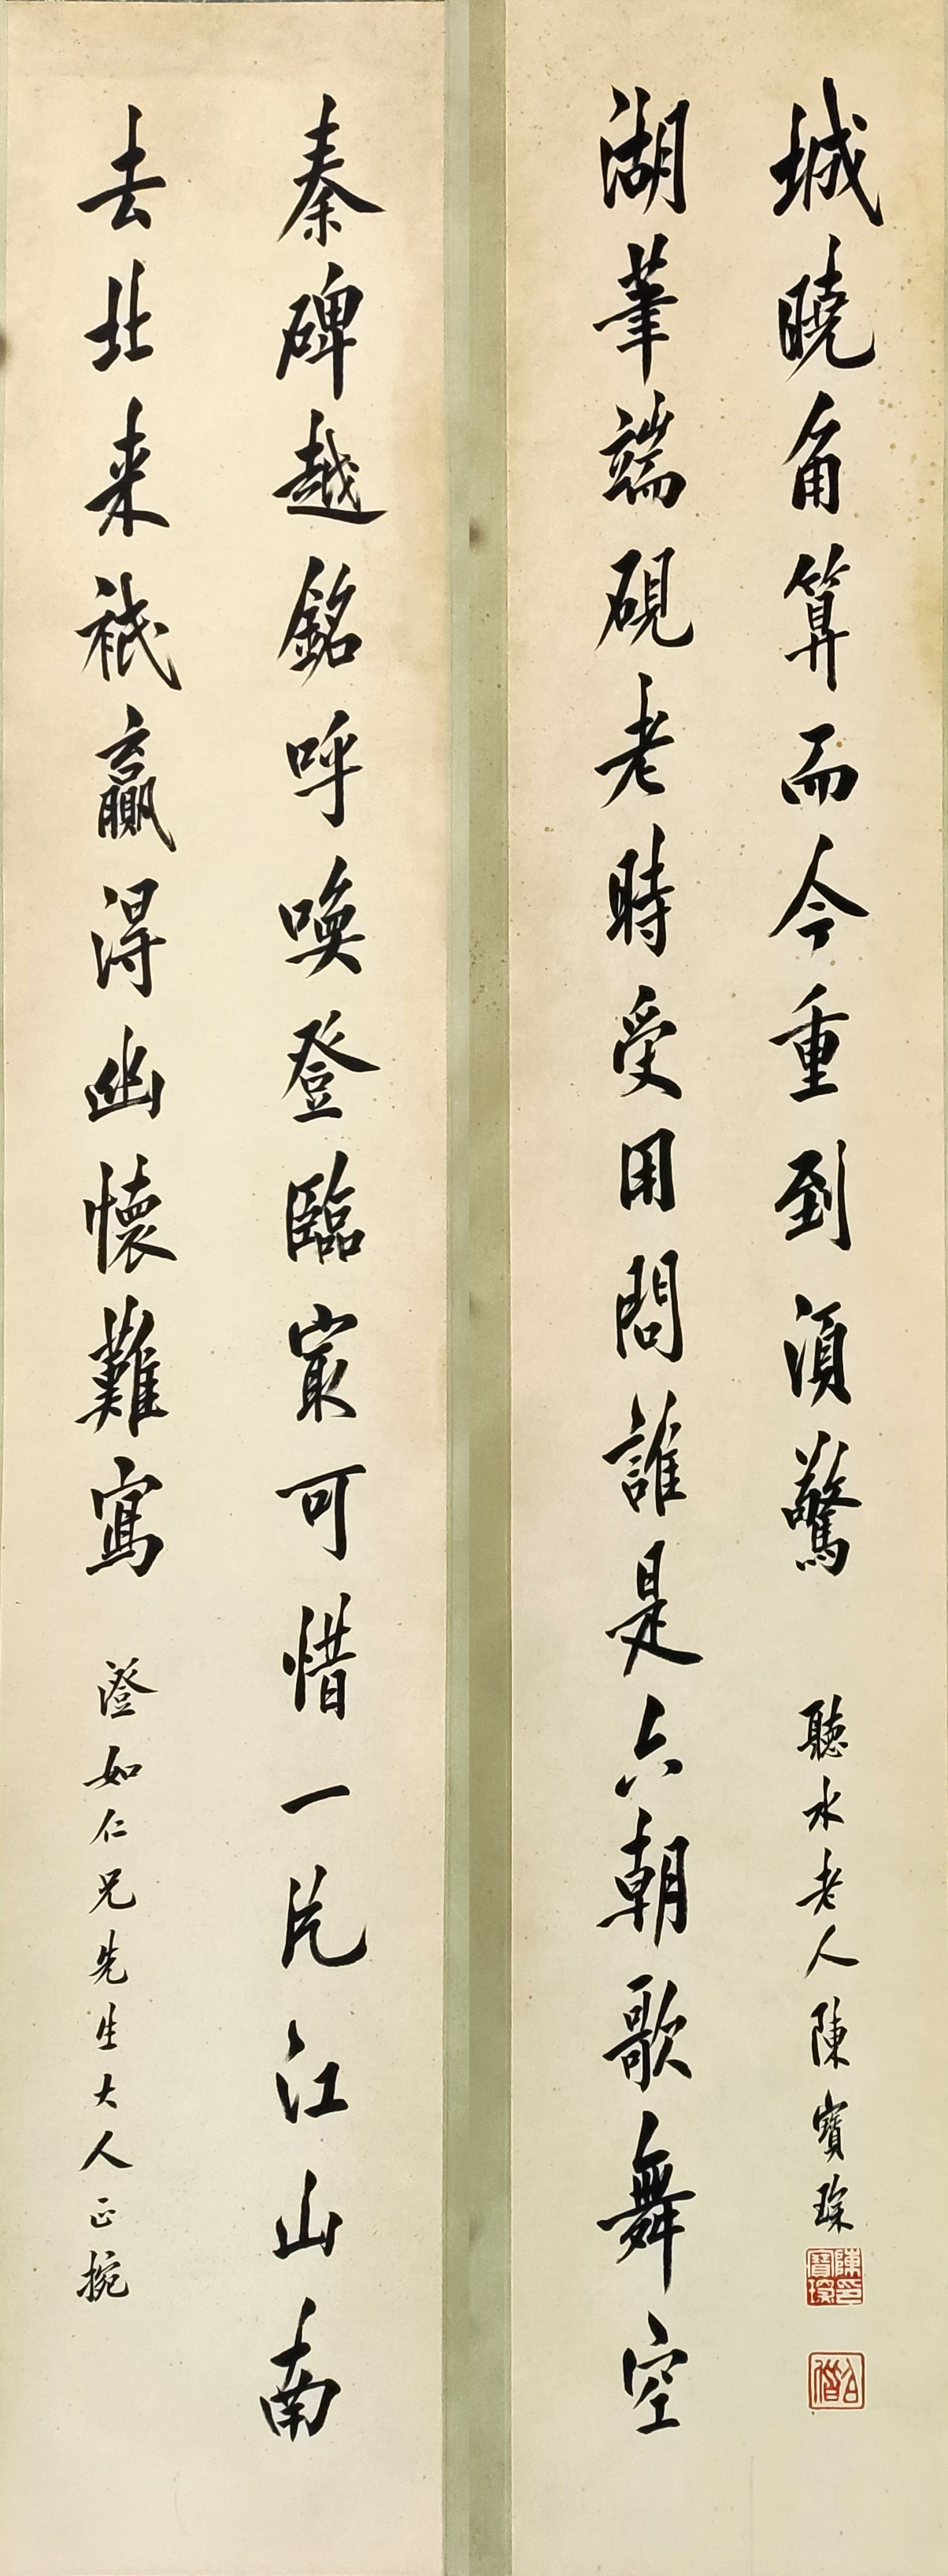 秦碑越銘呼喚登臨㝡可惜一片江山南
去北来祇贏得幽懷難寫
澄如仁兄先生大人正捥
湖筆端硯老時受用問誰是六朝歌舞空
城曉角算而今重到須驚
聽水老人陳寶琛
陳印寶琛